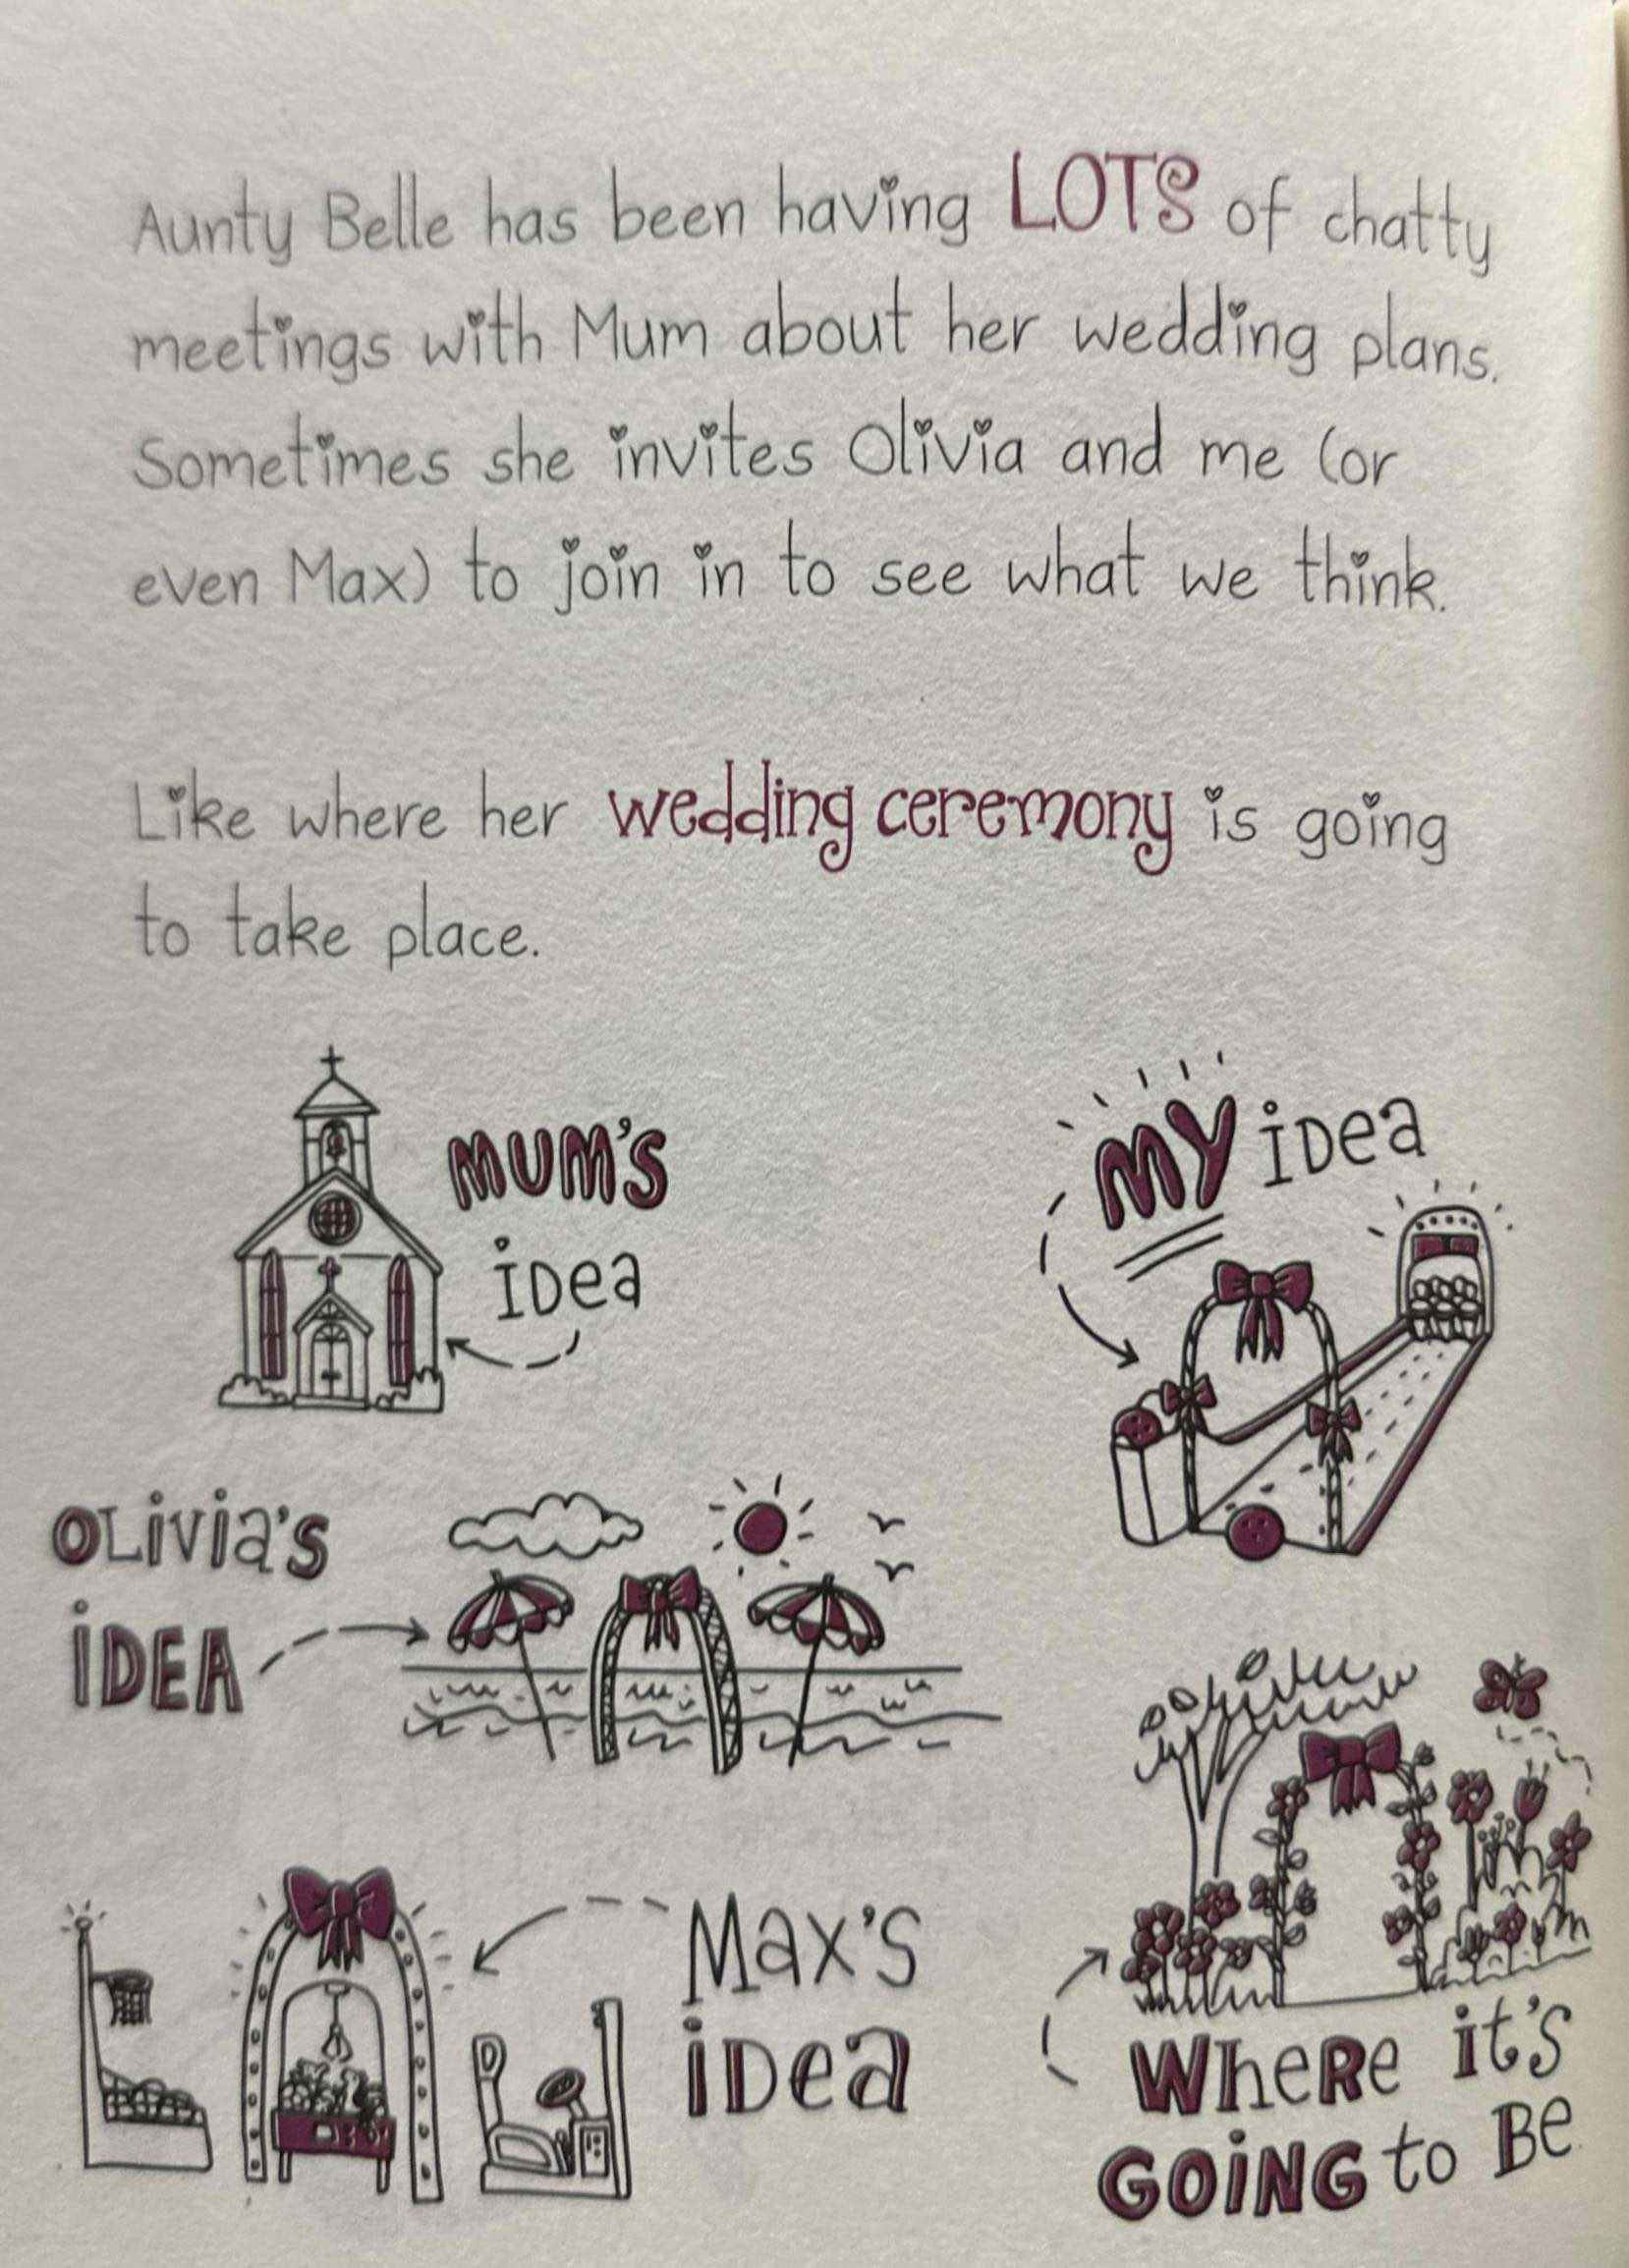 Aunty Belle has been having LOTS of chatty
meetings with Mum about her wedding plans.
Sometimes she invites Olivia and me (or
even Max) to join in to see what we think.
Like where her wedding ceremony is going
to take place.
MUM'S
iDea
MY iDea
OLivia's
iDEA
Max's
iDea
WHeRe it's
GOiNG to Be